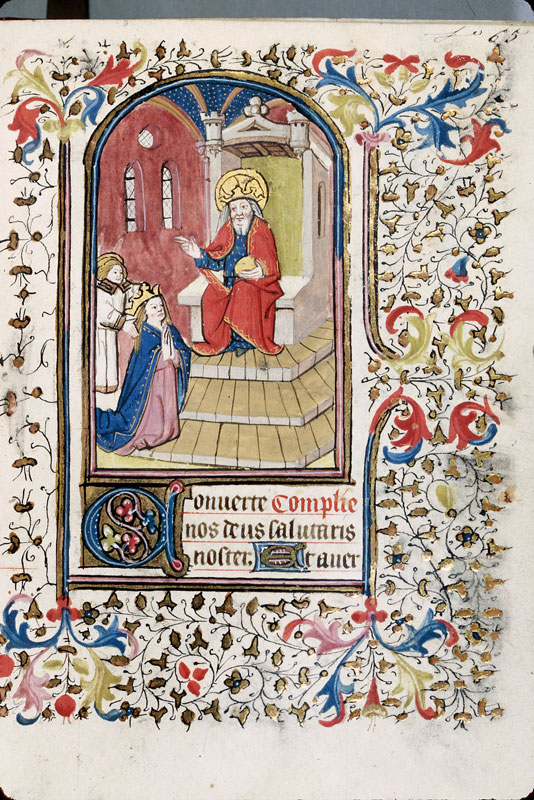 65
Conuerte Complie
nos deus salutaris
noster. Et auer